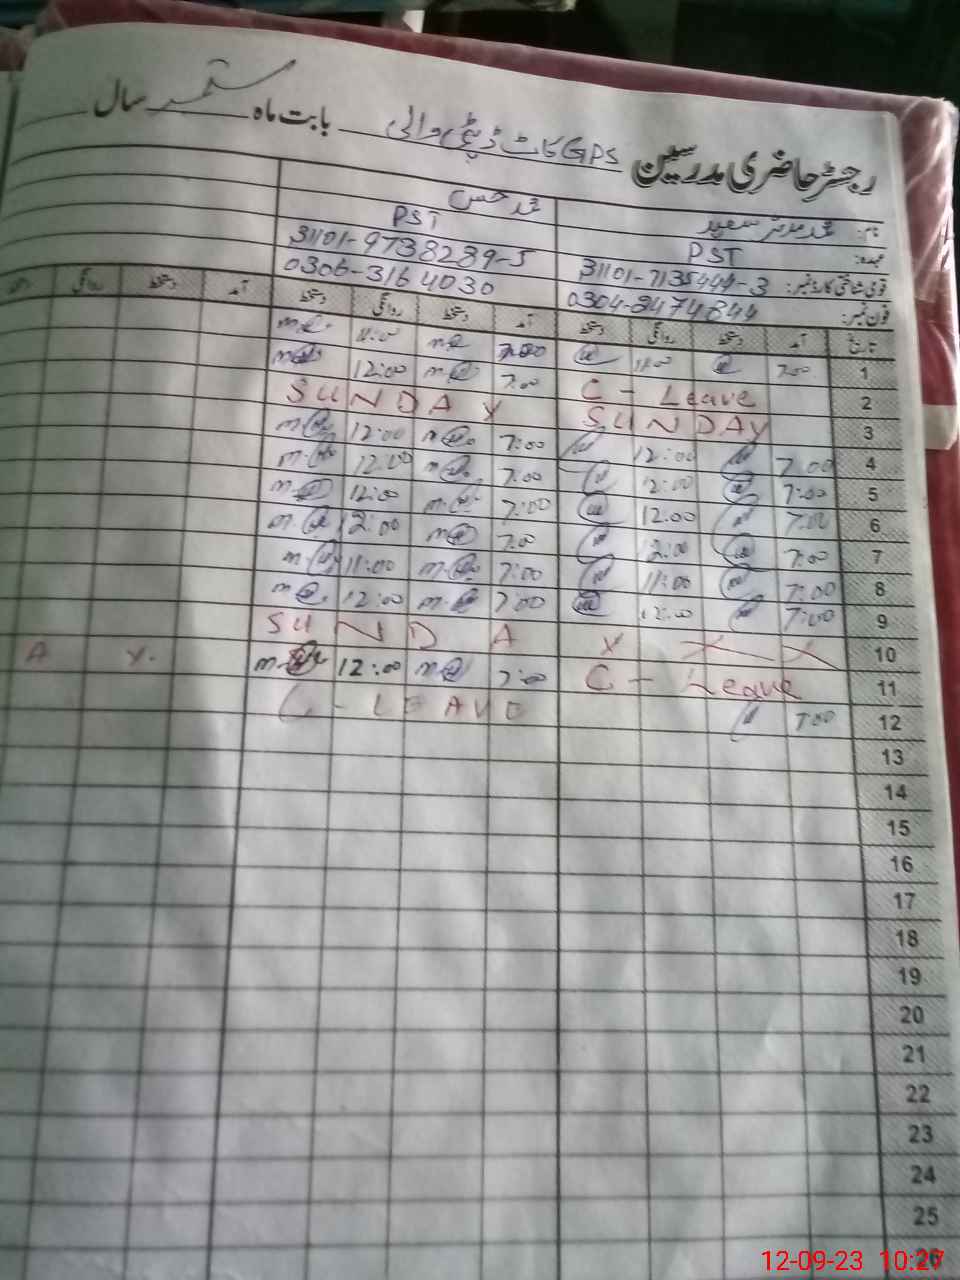 رجسٹر حاضری مدرسین GPS کاٹ ڈپٹی والی بابت ماہ ستمبر سال
نام: محمد مدثر سعید محمد حسن
عہدہ: PST PST
قومی شناختی کارڈ نمبر: 31101-7135444-3 31101-9738289-5
فون نمبر: 0304-8474844 0306-3164030
تاریخ آمد دستخط روانگی دستخط آمد دستخط روانگی دستخط آمد دستخط روانگی
1 7:00 11:00 7:00 11:00
2 C - Leave 7:00 12:00
3 SUNDAY SUNDAY
4 7:00 12:00 7:00 12:00
5 7:00 12:00 7:00 12:00
6 7:00 12:00 7:00 12:00
7 7:00 12:00 7:00 12:00
8 7:00 11:00 7:00 11:00
9 7:00 12:00 7:00 12:00
10 SUNDAY
11 C - Leave 7:00 12:00 Y. A
12 7:00 C - LEAVE
13
14
15
16
17
18
19
20
21
22
23
24
25
26
12-09-23 10:27